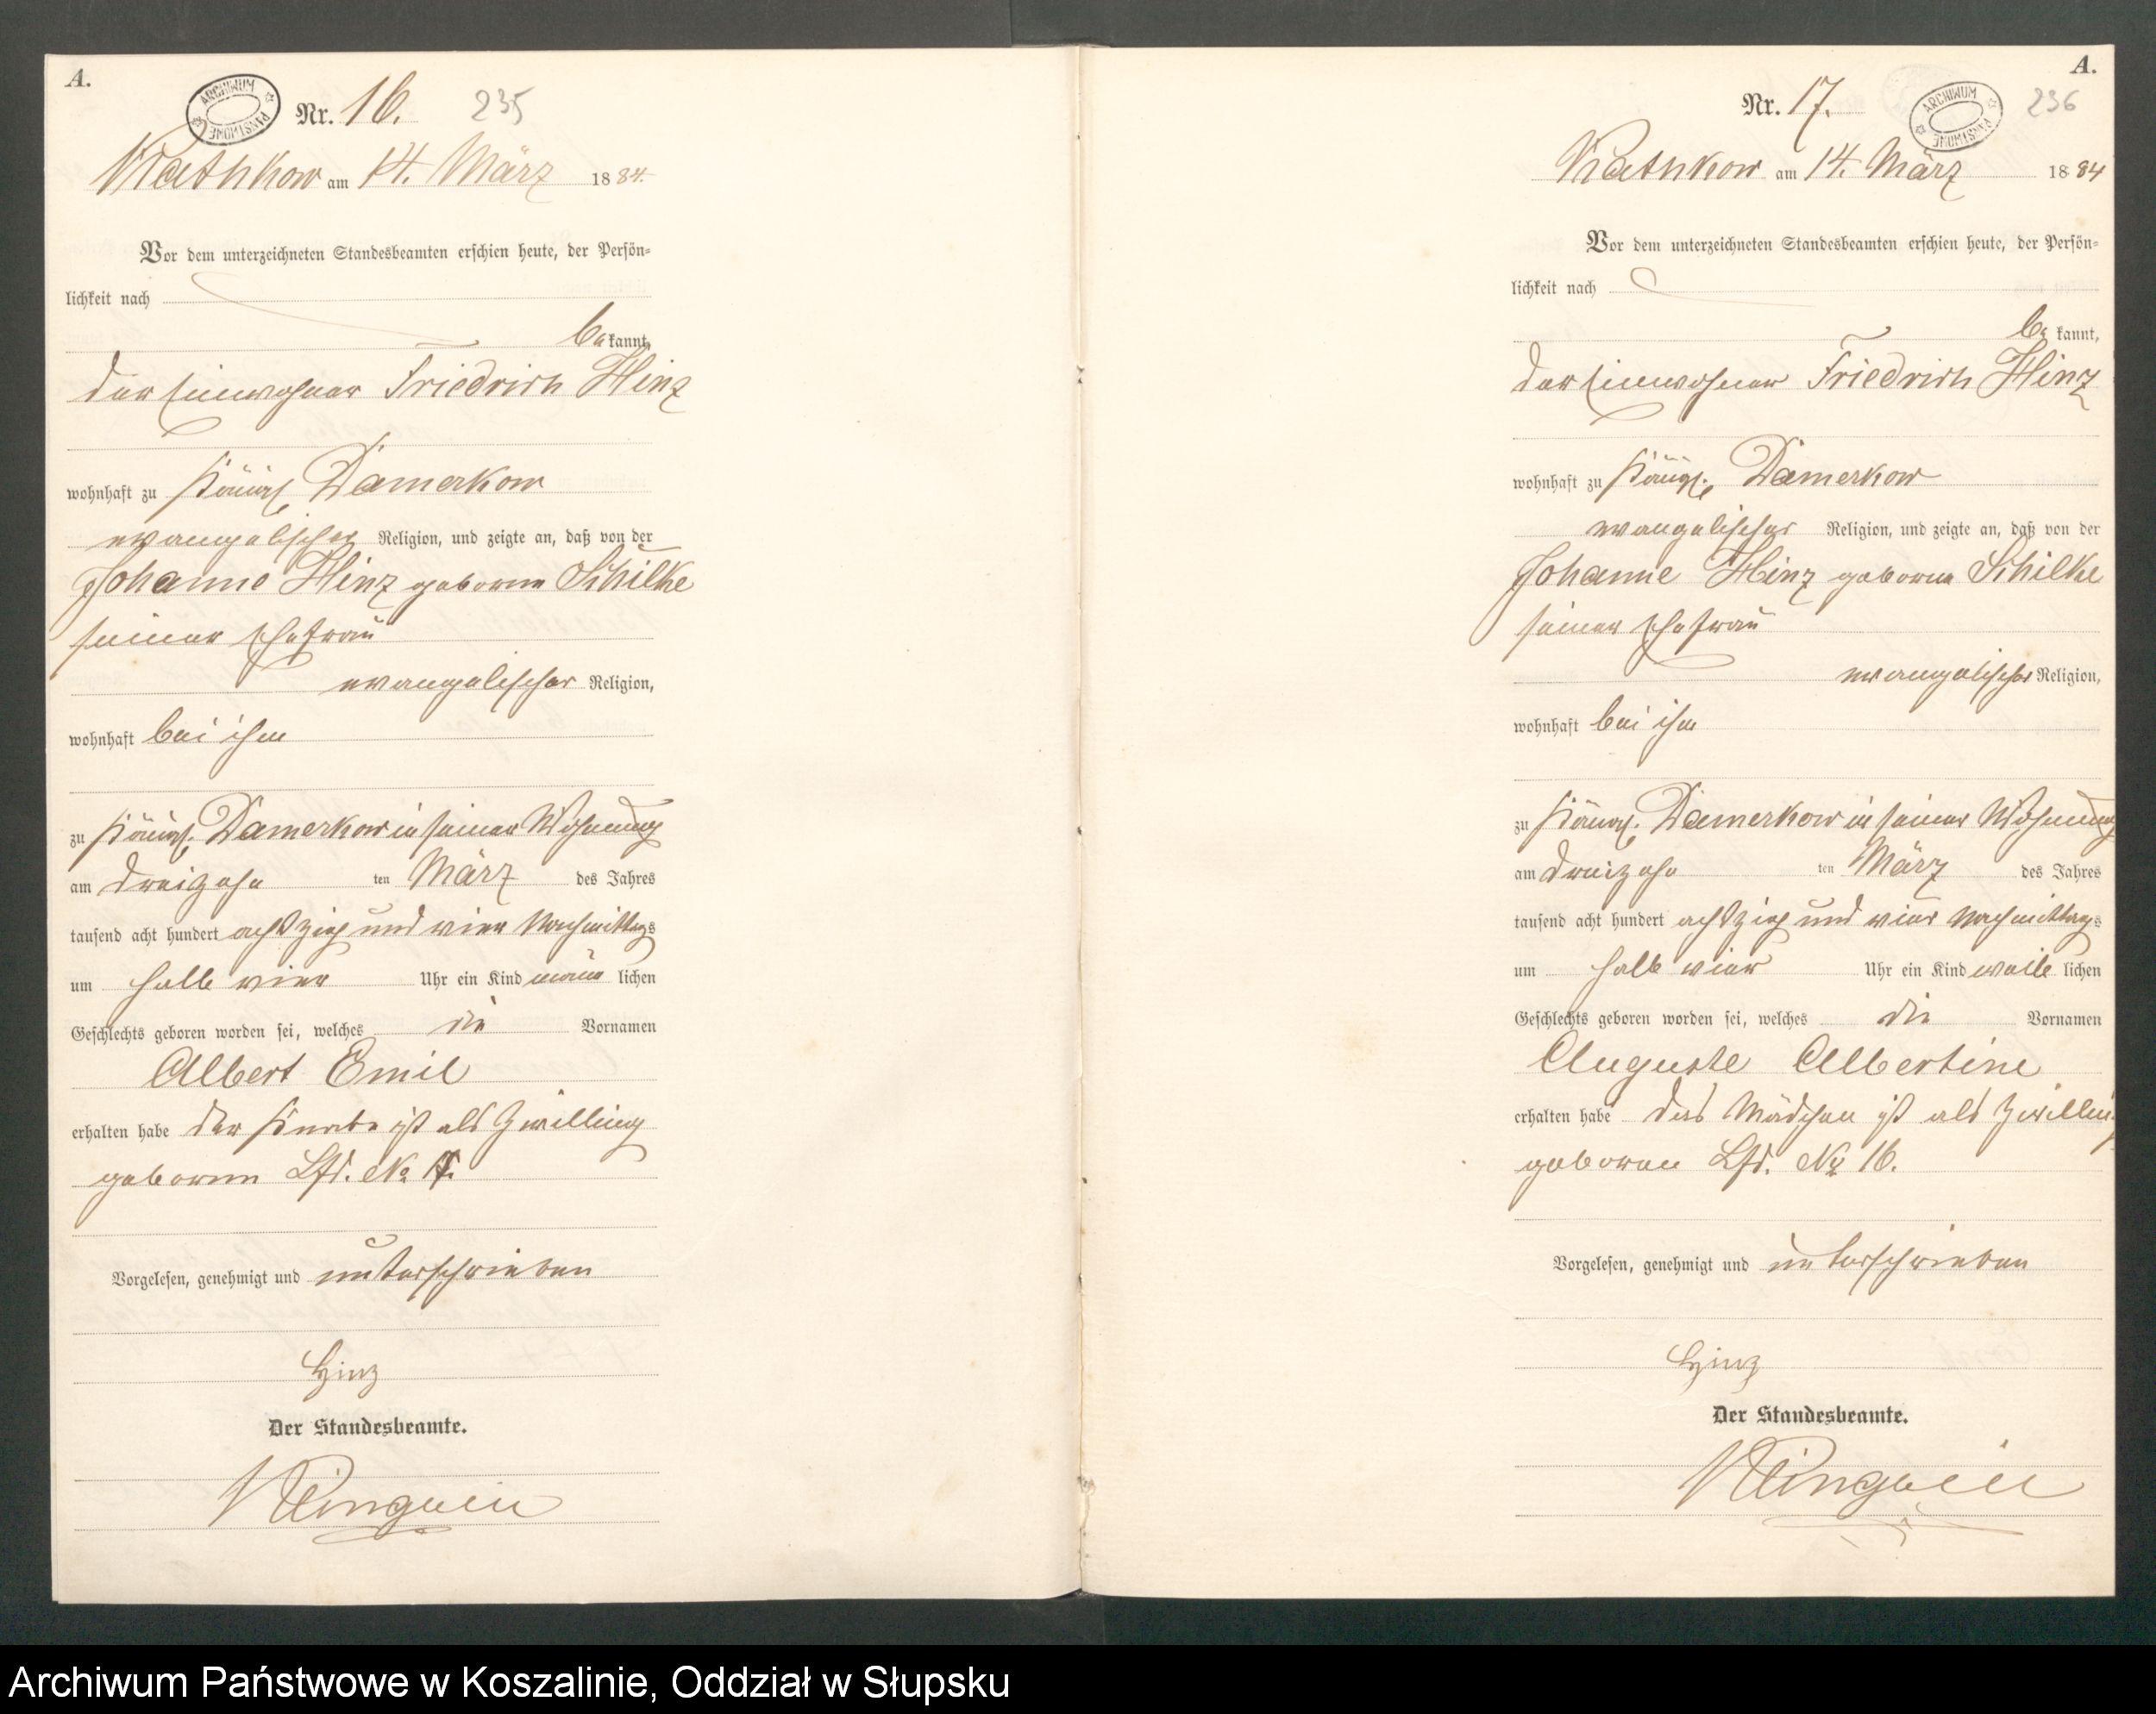 A.
ARCHIWUM PAŃSTWOWE
Nr. 16. 235
Wathkow am 14. März 1884.
Vor dem unterzeichneten Standesbeamten erschien heute, der Persön-
lichkeit nach
be kannt,
der Einwohner Friedrich Hinz
wohnhaft zu Königl. Damerkow
evangelischer Religion, und zeigte an, daß von der
Johanne Hinz geborne Schilke
seiner Ehefrau
evangelischer Religion,
wohnhaft bei ihm
zu Königl. Damerkow in seiner Wohnung
am dreizehn ten März des Jahres
tausend acht hundert achtzig und vier Nachmittags
um halb vier Uhr ein Kind männ lichen
Geschlechts geboren worden sei, welches die Vornamen
Albert Emil
erhalten habe der Knabe ist als Zwilling
geboren Lfd. No 17.
Vorgelesen, genehmigt und unterschrieben
Hinz
Der Standesbeamte.
A.
ARCHIWUM PAŃSTWOWE
Nr. 17. 236
Wathkow am 14. März 1884
Vor dem unterzeichneten Standesbeamten erschien heute, der Persön-
lichkeit nach
be kannt,
der Einwohner Friedrich Hinz
wohnhaft zu Königl. Damerkow
evangelischer Religion, und zeigte an, daß von der
Johanne Hinz geborne Schilke
seiner Ehefrau
evangelischer Religion,
wohnhaft bei ihm
zu Königl. Damerkow in seiner Wohnung
am dreizehn ten März des Jahres
tausend acht hundert achtzig und vier Nachmittags
um halb vier Uhr ein Kind weib lichen
Geschlechts geboren worden sei, welches die Vornamen
Auguste Albertine
erhalten habe das Mädchen ist als Zwilling
geboren Lfd. No 16.
Vorgelesen, genehmigt und unterschrieben
Hinz
Der Standesbeamte.
Archiwum Państwowe w Koszalinie, Oddział w Słupsku